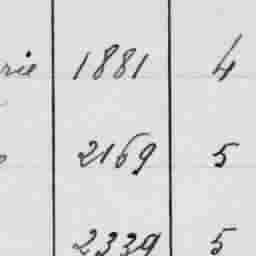 rie 1881 4
2169 5
2339 5